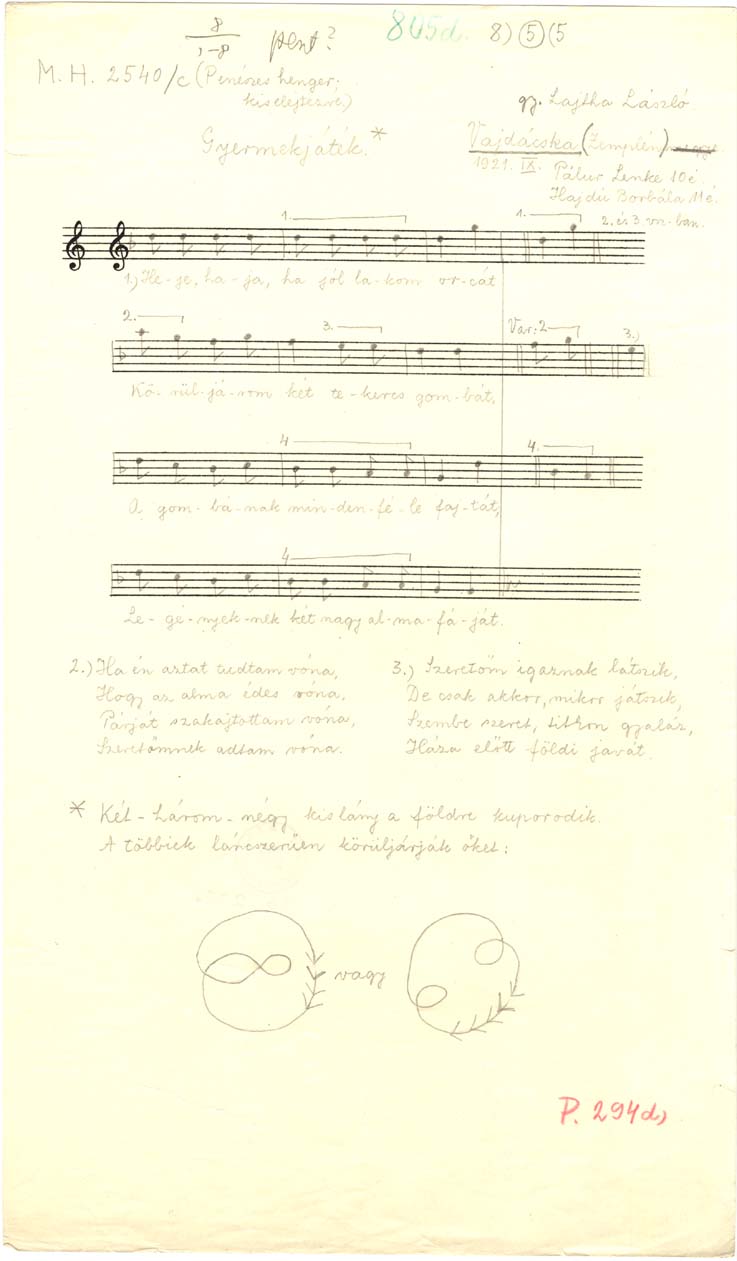 8
1-8 pent? 845d. 8) (5) (5
M. H. 2540/c (Penészes henger,
kiselejtezve.)
gy. Lajtha László
Gyermekjáték.*
Vajdácska (Zemplén)
1921. IX. Pálur Lenke 10é.
Hajdú Borbála 11é.
1. 1. 2. és 3. vsz-ban.
1.) He-je, ha-ja, ha jól la-kom or-cát
2. 3. Var: 2 3.)
Kö-rül-já-rom két te-kercs gom-bát.
4 4.
A gom-bá-nak min-den-fé-le faj-tát,
4
Le-gé-nyek-nek két nagy al-ma-fá-ját.
2.) Ha én aztat tudtam vóna,
Hogy az alma édes vóna,
Párját szakajtottam vóna,
Szeretőmnek adtam vóna.
3.) Szeretőm igaznak látszik,
De csak akkor, mikor játszik,
Szembe szeret, titkon gyaláz,
Háza előtt földi javát.
* Két-három-négy kislány a földre kuporodik.
A többiek láncszerűen körüljárják őket:
vagy
P. 294d)